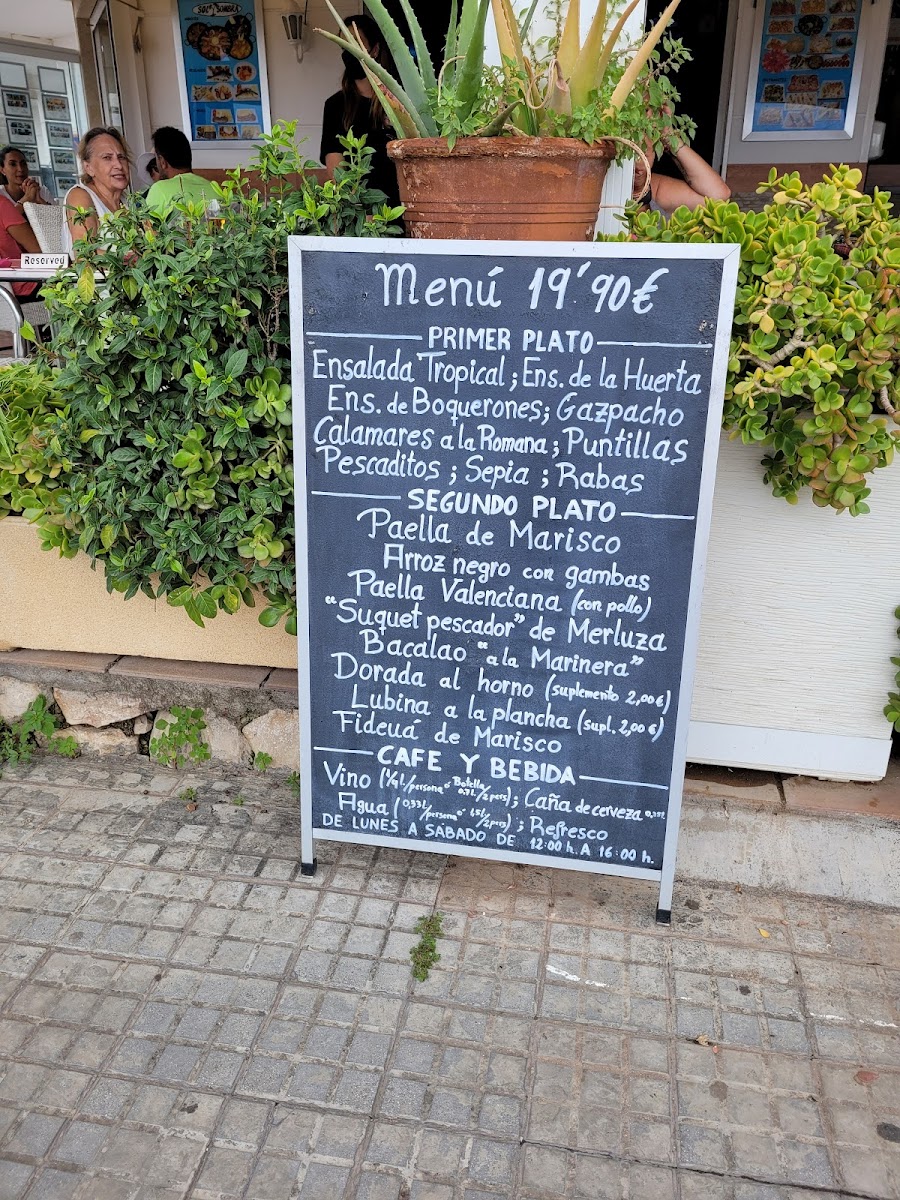 SOL Y SOMBRA
Reserved
Menú 19'90€
PRIMER PLATO
Ensalada Tropical; Ens. de la Huerta
Ens. de Boquerones; Gazpacho
Calamares a la Romana; Puntillas
Pescaditos; Sepia; Rabas
SEGUNDO PLATO
Paella de Marisco
Arroz negro con gambas
Paella Valenciana (con pollo)
"Suquet pescador" de Merluza
Bacalao "a la Marinera"
Dorada al horno (suplemento 2,00€)
Lubina a la plancha (supl. 2,00€)
Fideuá de Marisco
CAFE Y BEBIDA
Vino (1/4 l./persona ó Botella 0,7 l./2 pers); Caña de cerveza
Agua (0,33 l/persona ó 1,5 l/2 pers); Refresco
DE LUNES A SABADO DE 12:00 h. A 16:00 h.